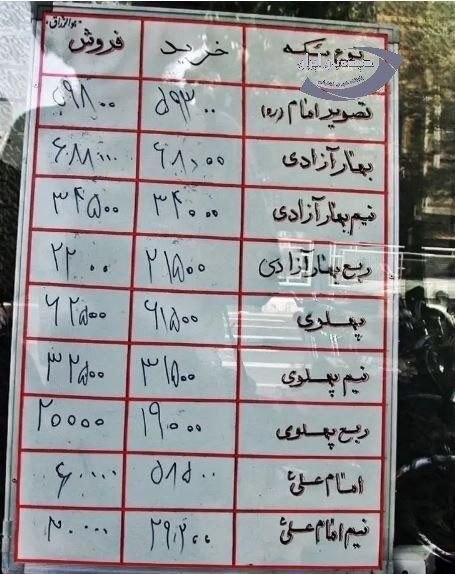 هوالرزاق
نوع سکه خرید فروش
تصویر امام (ره) ۵۹۳۰۰ ۵۹۸۰۰
بهار آزادی
نیم بهار آزادی ۳۴۰۰۰ ۳۴۵۰۰
ربع بهار آزادی ۲۱۵۰۰ ۲۲۰۰۰
پهلوی ۶۱۵۰۰ ۶۲۵۰۰
نیم پهلوی ۳۱۵۰۰ ۳۲۵۰۰
ربع پهلوی ۱۹۰۰۰ ۲۰۰۰۰
امام علی ۵۸۵۰۰ ۶۰۰۰۰
نیم امام علی ۲۹۲۰۰ ۳۰۰۰۰